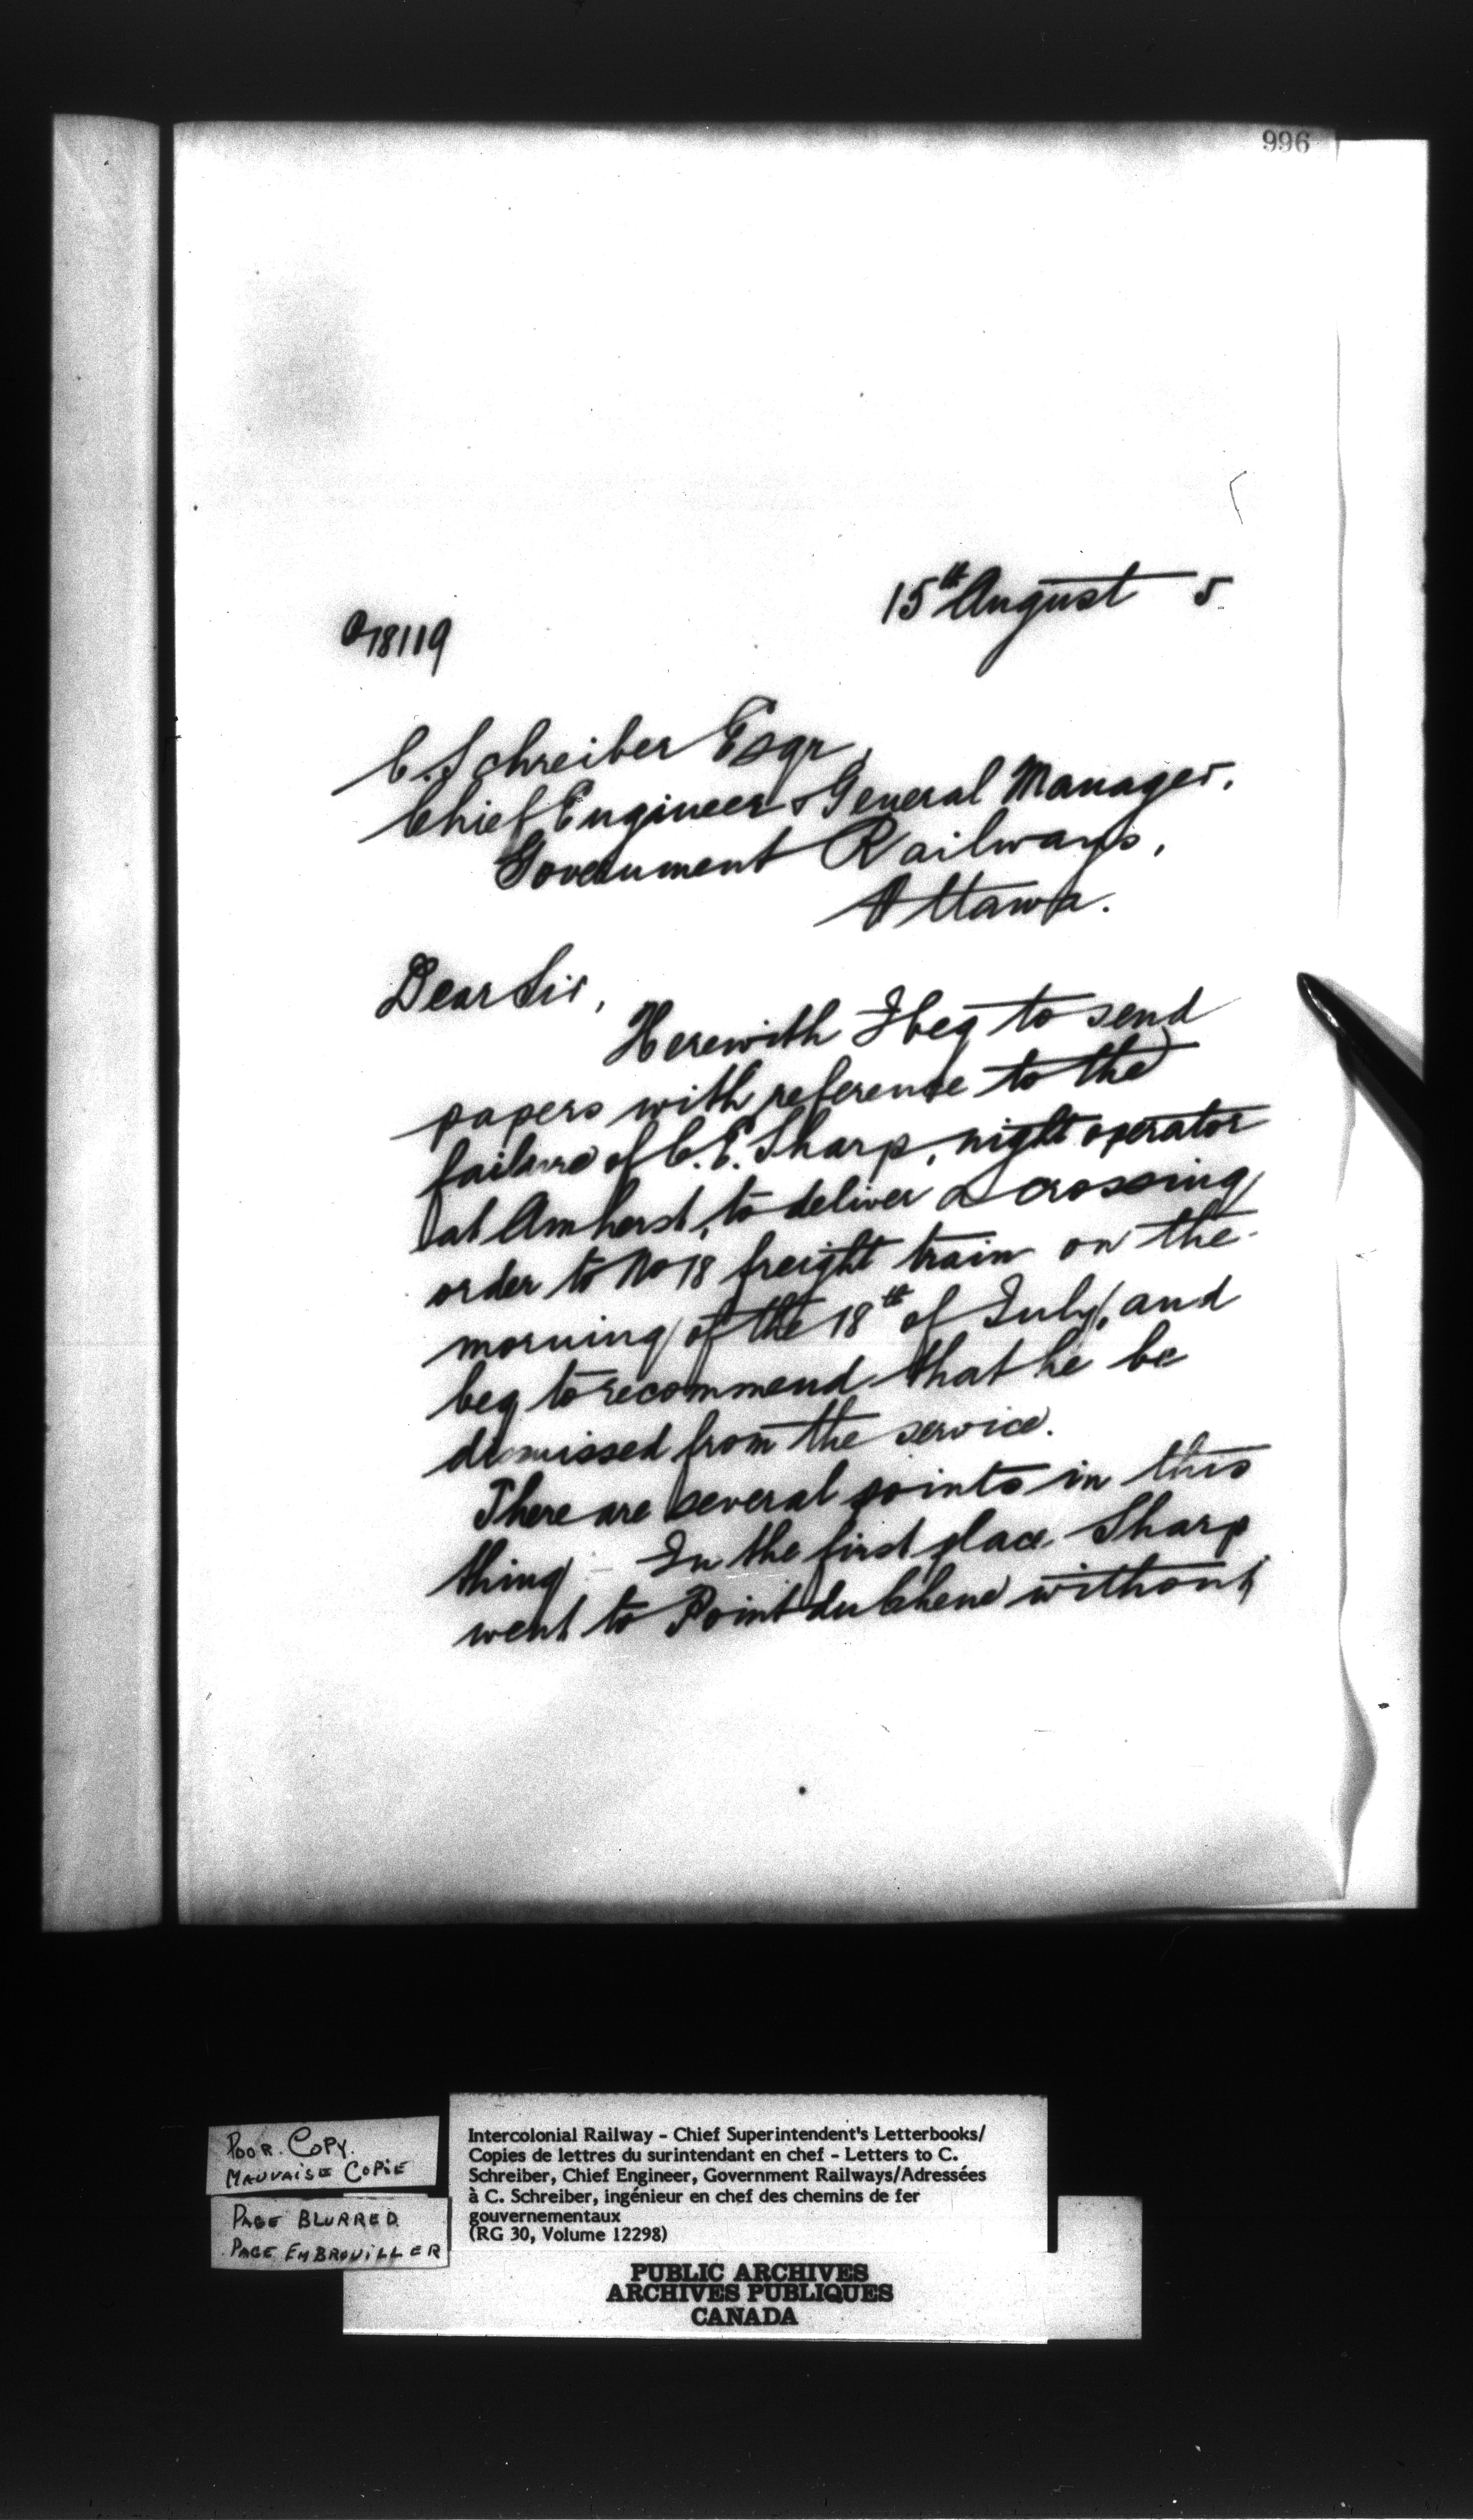 996
15th August 5
018119
C. Schreiber Esqr,
Chief Engineer & General Manager,
Government Railways,
Ottawa.
Dear Sir,
Herewith I beg to send
papers with reference to the
failure of C. E. Sharp, night operator
at Amherst, to deliver a crossing
order to No 18 freight train on the
morning of the 18th of July, and
beg to recommend that he be
dismissed from the service.
There are several points in this
thing - In the first place Sharp
went to Point du Chene without
POOR. COPY.
MAUVAISE COPIE
PAGE BLURRED.
PAGE EMBROUILLER
Intercolonial Railway - Chief Superintendent's Letterbooks/
Copies de lettres du surintendant en chef - Letters to C.
Schreiber, Chief Engineer, Government Railways/Adressées
à C. Schreiber, ingénieur en chef des chemins de fer
gouvernementaux
(RG 30, Volume 12298)
PUBLIC ARCHIVES
ARCHIVES PUBLIQUES
CANADA